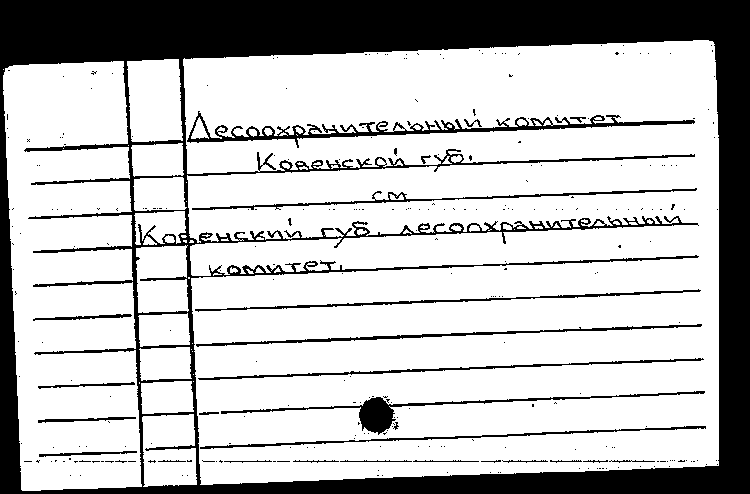 Лесоохранительный комитет
Ковенской губ.
см
Ковенский губ. лесоохранительный
комитет.